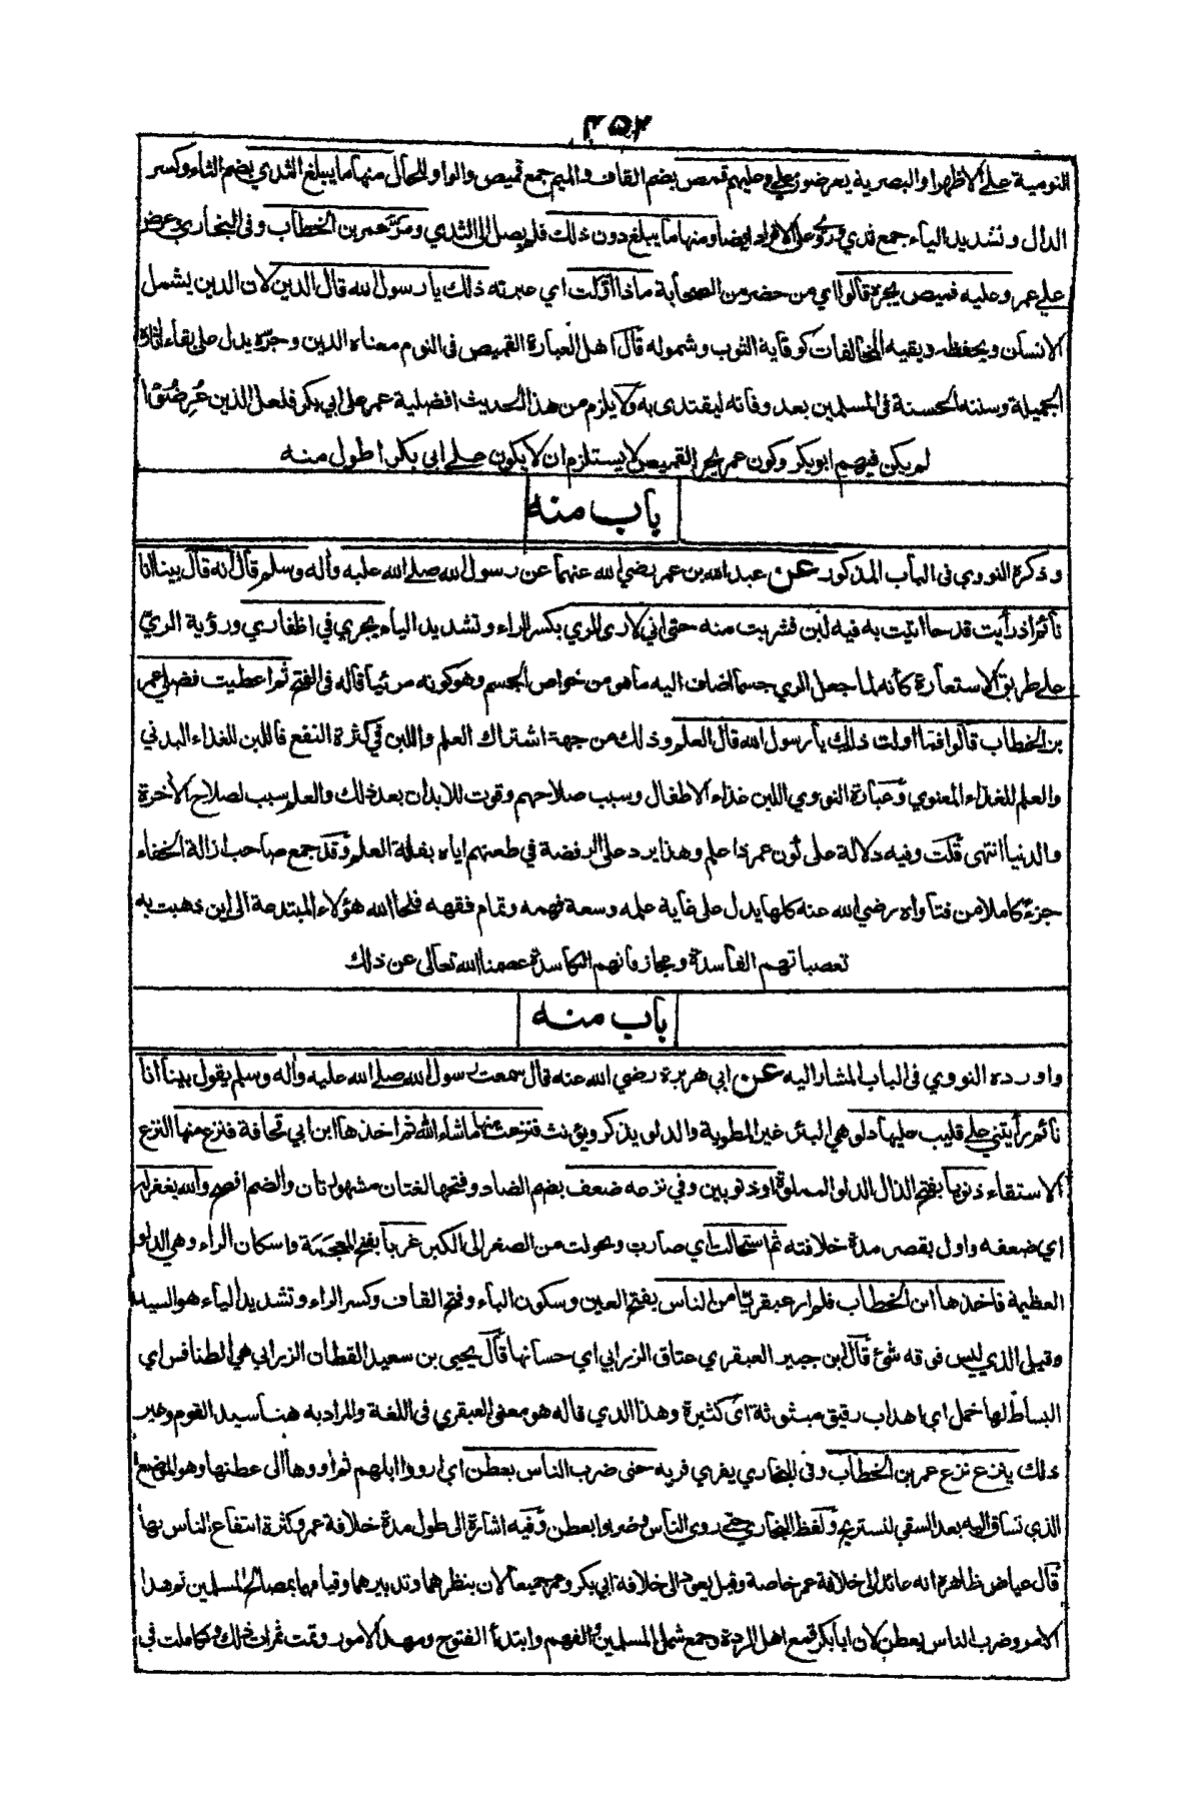 ٣٥٢
النومية على الاظهر او البصرية يعرضون علي وعليهم قمص بضم القاف والميم جمع قميص والواو للحال منها ما يبلغ الثدي بضم الثاء وكسر
الدال وتشديد الياء جمع ثدي وروي على الافراد ايضا ومنها ما يبلغ دون ذلك فلم يصل الى الثدي ومر عمر بن الخطاب وفي البخاري وعرض
علي عمر وعليه قميص يجره قالوا اي من حضر من الصحابة ماذا اوّلت اي عبرته ذلك يا رسول الله قال الدين لان الدين يشمل
الانسان ويحفظه ويقيه المخالفات كوقاية الثوب وشموله قال اهل العبارة القميص في النوم معناه الدين وجرّه يدل على بقاء اثاره
الجميلة وسننه الحسنة في المسلمين بعد وفاته ليقتدى به ولا يلزم من هذا الحديث افضلية عمر على ابي بكر فلعل الذين عُرِضُوا
لم يكن فيهم ابو بكر وكون عمر يجر القميص لا يستلزم ان لا يكون على ابي بكر اطول منه
باب منه
وذكره النووي في الباب المذكور عن عبد الله بن عمر رضي الله عنهما عن رسول الله صلى الله عليه وآله وسلم قال انه قال بينا انا
نائم اذ رأيت قدحا اتيت به فيه لبن فشربت منه حتى اني لارى الري بكسر الراء وتشديد الياء يجري في اظفاري ورؤية الريّ
على طريق الاستعارة كأنه لما جعل الري جسما اضاف اليه ما هو من خواص الجسم وهو كونه مرئيا قاله في الفتح ثم اعطيت فضلي عمر
بن الخطاب قالوا فما اولت ذلك يا رسول الله قال العلم وذلك من جهة اشتراك العلم واللبن في كثرة النفع فاللبن للغذاء البدني
والعلم للغذاء المعنوي وعبارة النووي اللبن غذاء الاطفال وسبب صلاحهم وقوت للابدان بعد ذلك والعلم سبب لصلاح الآخرة
والدنيا انتهى قلت وفيه دلالة على كون عمر ذا علم وهذا يرد على الرفضة في طعنهم اياه بقلة العلم وقد جمع صاحب ازالة الخفاء
جزءً كاملا من فتاواه رضي الله عنه كلها يدل على غاية علمه وسعة فهمه وتمام فقهه فلحا الله هؤلاء المبتدعة الى اين ذهبت به
تعصباتهم الفاسدة ومجازفاتهم الكاسدة عصمنا الله تعالى عن ذلك
باب منه
واورده النووي في الباب المشار اليه عن ابي هريرة رضي الله عنه قال سمعت رسول الله صلى الله عليه وآله وسلم يقول بينا انا
نائم رأيتني على قليب عليها دلو هي البئر غير المطوية والدلو يذكر ويؤنث فنزعت منها ما شاء الله ثم اخذها ابن ابي قحافة فنزع منها النزع
الاستقاء ذنوبا بفتح الذال الدلو المملوة او ذنوبين وفي نزعه ضعف بضم الضاد وفتحها لغتان مشهورتان والضم افصح والله يغفر له
اي ضعفه واول بقصر مدة خلافته ثم استحالت اي صارت وتحولت من الصغر الى الكبر غربا بفتح المعجمة واسكان الراء وهي الدلو
العظيمة فاخذها ابن الخطاب فلم ار عبقريا من الناس بفتح العين وسكون الباء وفتح القاف وكسر الراء وتشديد الياء هو السيد
وقيل الذي ليس فوقه شئ قال ابن جبير العبقري عتاق الزرابي اي حسانها قال يحيى بن سعيد القطان الزرابي هي الطنافس اي
البساط لها خمل اي اهداب رقيق مبثوثة اي كثيرة وهذا الذي قاله هو معنى العبقري في اللغة والمراد به هنا سيد القوم وغير
ذلك ينزع نزع عمر بن الخطاب وفي البخاري يفري فريه حتى ضرب الناس بعطن اي ارووا ابلهم ثم اووها الى عطنها وهو الموضع
الذي تساق اليه بعد السقي لتستريح ولفظ البخاري حتى روى الناس وضربوا بعطن وفيه اشارة الى طول مدة خلافة عمر وكثرة انتفاع الناس بها
قال عياض ظاهره انه عائد الى خلافة عمر خاصة وقيل يعود الى خلافة ابي بكر وعمر جميعا لان بنظرهما وتدبيرهما وقيامهما بمصالح المسلمين تم هذا
الامر وضرب الناس بعطن لان ابا بكر قمع اهل الردة وجمع شمل المسلمين والفهم وابتدأ الفتوح ومهد الامور وتمت ثمرات ذلك وتكاملت في